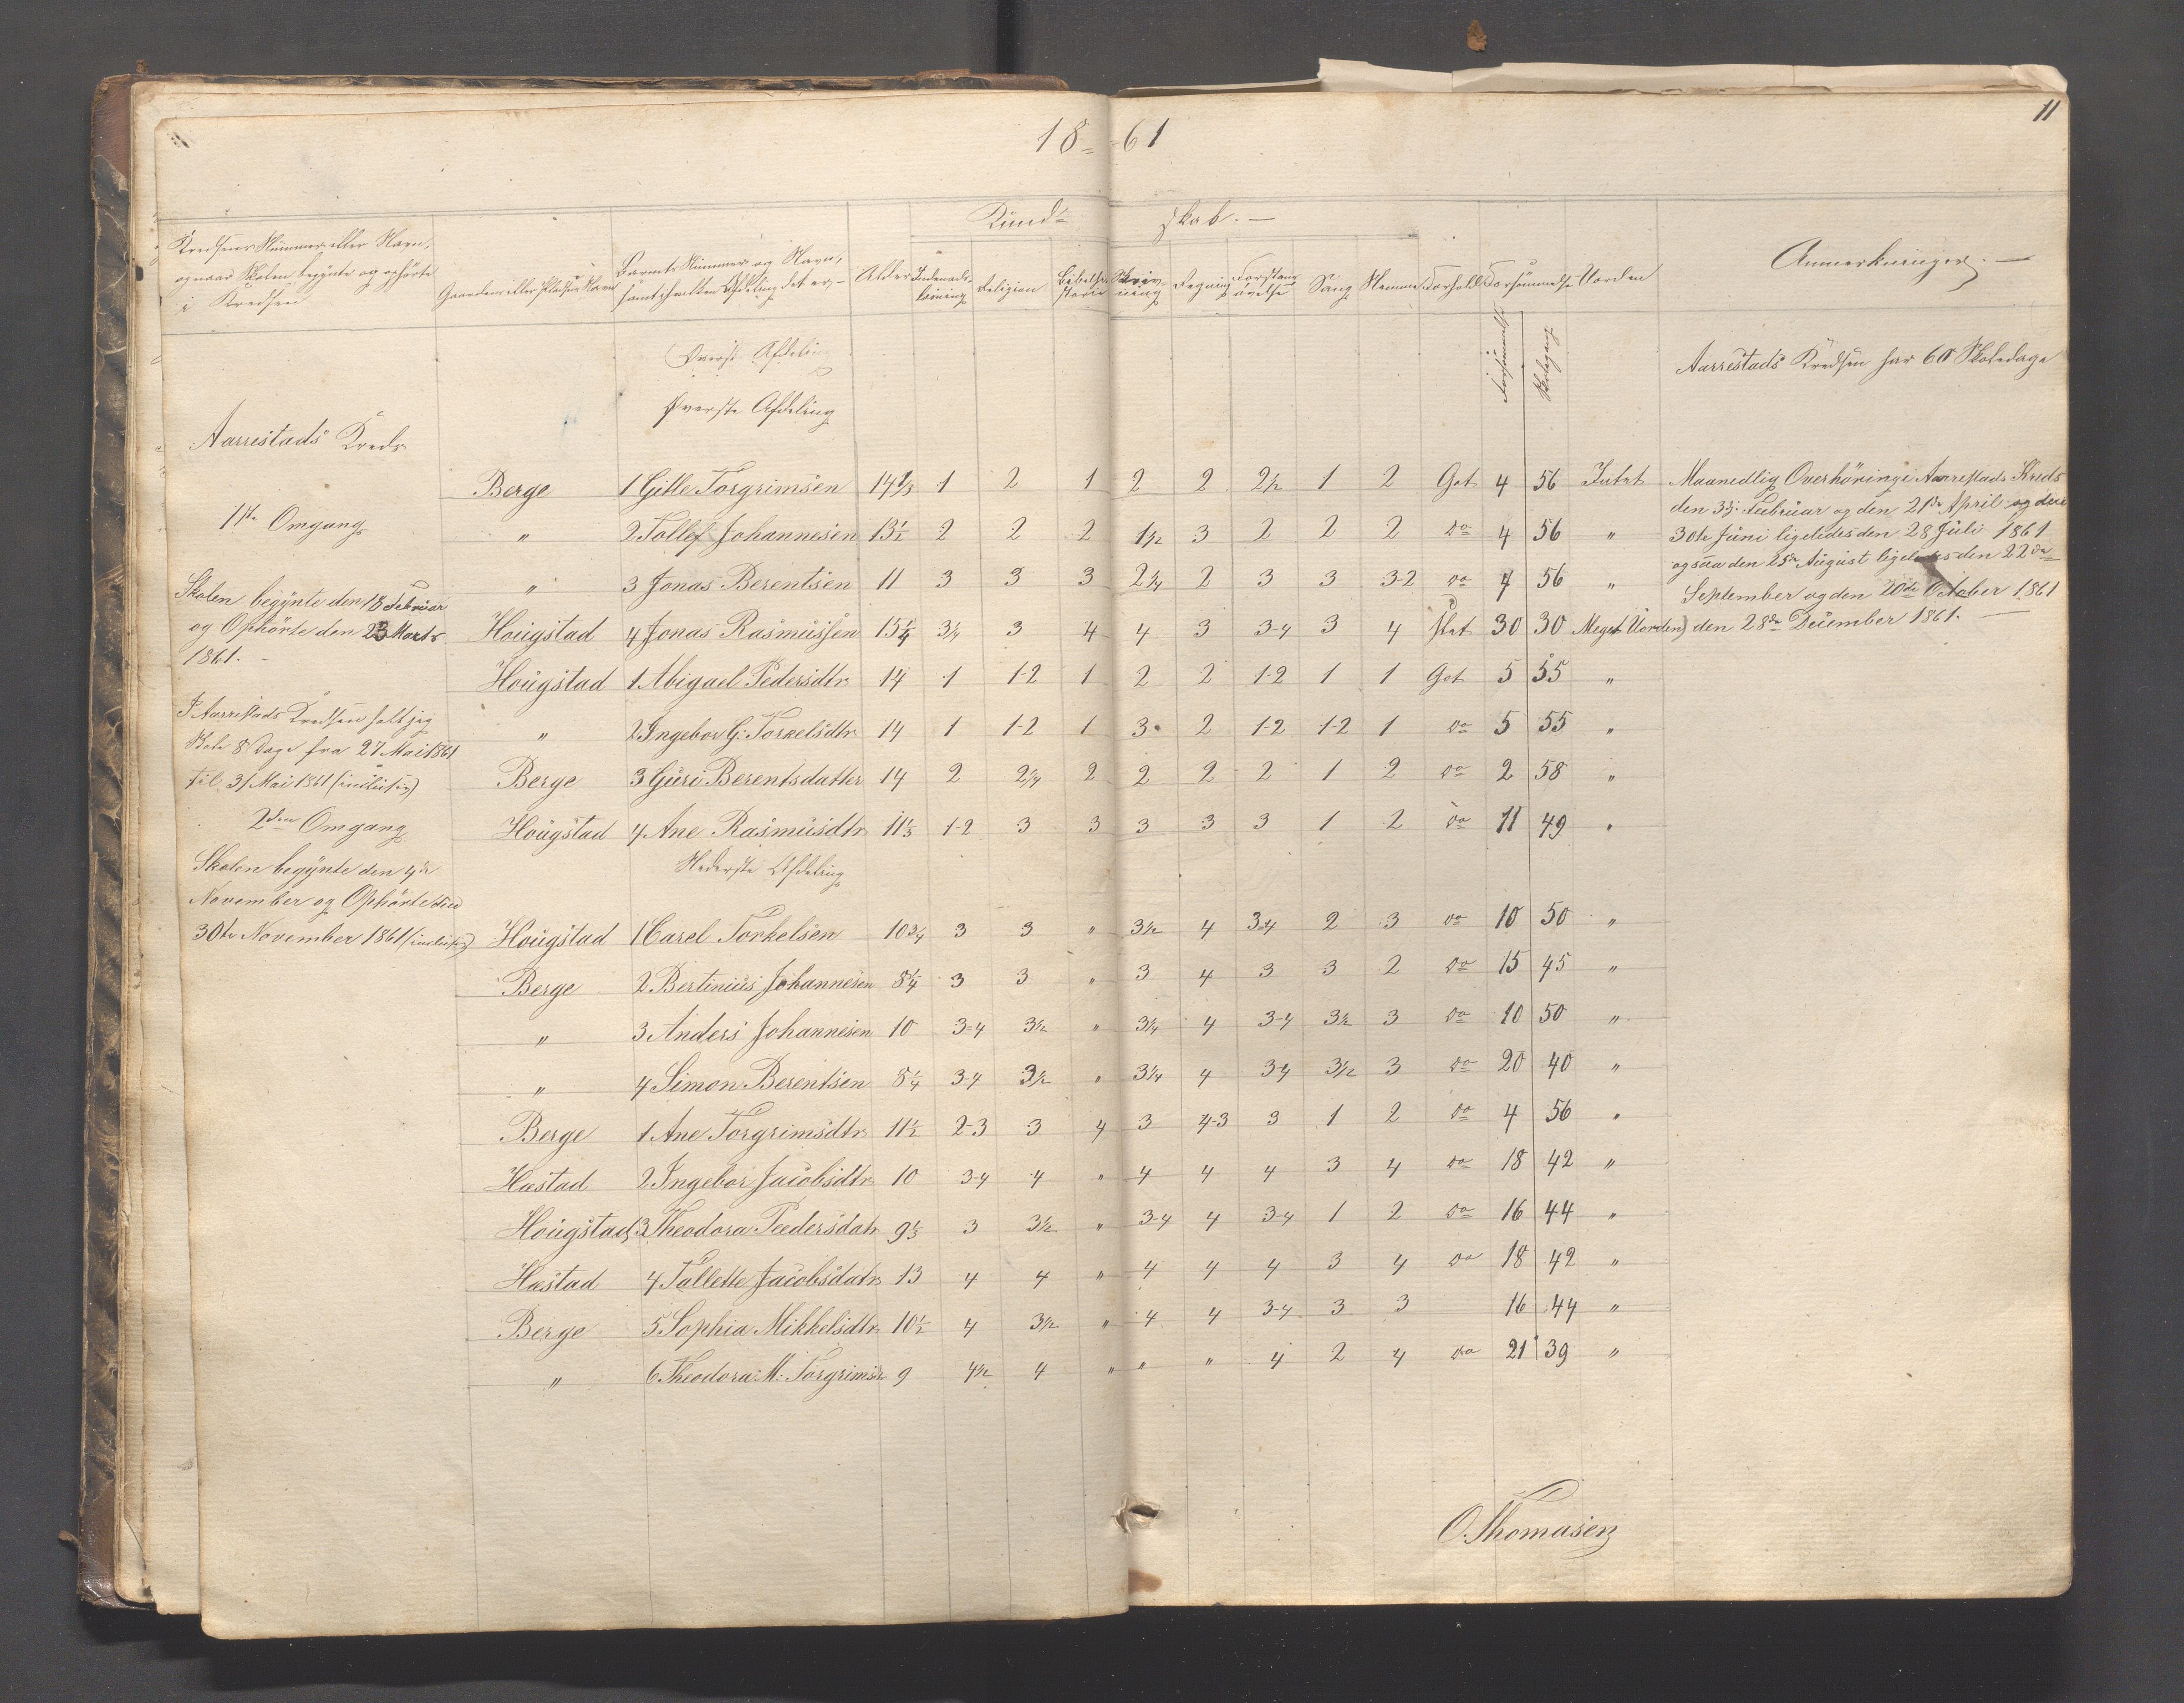 11
18 61
Kund- skab. —
Kredsens Nummer eller Navn,
og naar Skolen begynte og ophørte
i Kredsen
Gaardens eller Pladsens Navn
Barnets Nummer og Navn,
samt hvilken Afdeling det er,
Alder
Indenadslæsning
Religion
Bibelhistorie
Skrivning
Regning
Forstandsøvelse
Sang
Nemme
Forhold
Forsømmelse
Uorden
Anmerkninger. —
Forsømmelse
Skolegang
Øverste Afdelin
Øverste Afdeling
Aarrestads Kredsen har 60 Skoledage
Aarrestads Kreds
1ste Omgang
Skolen begynte den 18 Februar
og Ophörte den 23 Marts
1861. —
I Aarrestads Kredsen holt jeg
Skole 8 Dage fra 27 Mai 1861
til 31 Mai 1861 (inclusiv)
2den Omgang
Skolen begynte den 4de
November og Ophörte den
30te November 1861 (inclusiv)
Berge 1 Gitle Torgrimsen 14 1/3 1 2 1 2 2 2 1/2 1 2 Got 4 56 Intet
" 2 Tollef Johannesen 13 1/2 2 2 2 1 1/2 3 2 2 2 do 4 56 "
" 3 Jonas Berentsen 11 3 3 3 2 1/4 2 3 3 3-2 do 4 56 "
Hougstad 4 Jonas Rasmussen 15 1/4 3 1/4 3 4 4 3 3-4 3 4 slet 30 30 Meget Uorden
Hougstad 1 Abigael Pedersdtr 14 1 1-2 1 2 2 1-2 1 1 Got 5 55 "
" 2 Ingebor G: Torkelsdtr 14 1 1-2 1 3 2 1-2 1-2 1 do 5 55 "
Berge 3 Guro Berentsdatter 14 2 2 1/4 2 2 2 2 1 2 do 2 58 "
Hougstad 4 Ane Rasmusdtr 11 1/3 1-2 3 3 3 3 3 1 2 do 11 49 "
Maanedlig Overhöring i Aarrestads Kreds
den 3dj Februar og den 21de April og den
30te Juni ligeledes den 28 Juli 1861
ogsaa den 25de August ligeledes den 22de
September og den 20de October 1861
den 28de Decemember 1861. —
Nederste Afdeling
Hougstad 1 Carel Torkelsen 10 3/4 3 3 " 3 1/2 4 3-4 2 3 do 10 50 "
Berge 2 Bertinius Johannesen 8 1/4 3 3 " 3 4 3 3 2 do 15 45 "
" 3 Anders Johannesen 10 3-4 3 1/2 " 3 1/4 4 3-4 3 1/2 3 do 10 50 "
" 4 Simon Berentsen 8 1/4 3-4 3 1/2 " 3 1/4 4 3-4 3 1/2 3 do 20 40 "
Berge 1 Ane Torgrimsdtr 11 1/2 2-3 3 4 3 4-3 3 1 2 do 4 56 "
Hastad 2 Ingebor Jacobsdtr 10 3-4 4 " 4 4 4 3 4 do 18 42 "
Hougstad 3 Theodora Peedersdatr 9 1/3 3 3 1/2 " 3-4 4 3-4 1 2 do 16 44 "
Hastad 4 Tallette Jacobsdatr 13 4 4 " 4 4 4 3 4 do 18 42 "
Berge 5 Sophia Mikkelsdtr 10 1/2 4 3 1/2 " 4 4 3-4 3 3 16 44 "
" 6 Theodora M: Torgrimsdr 9 4 1/2 4 " " " 4 2 4 do 21 39 "
O. Thomasen